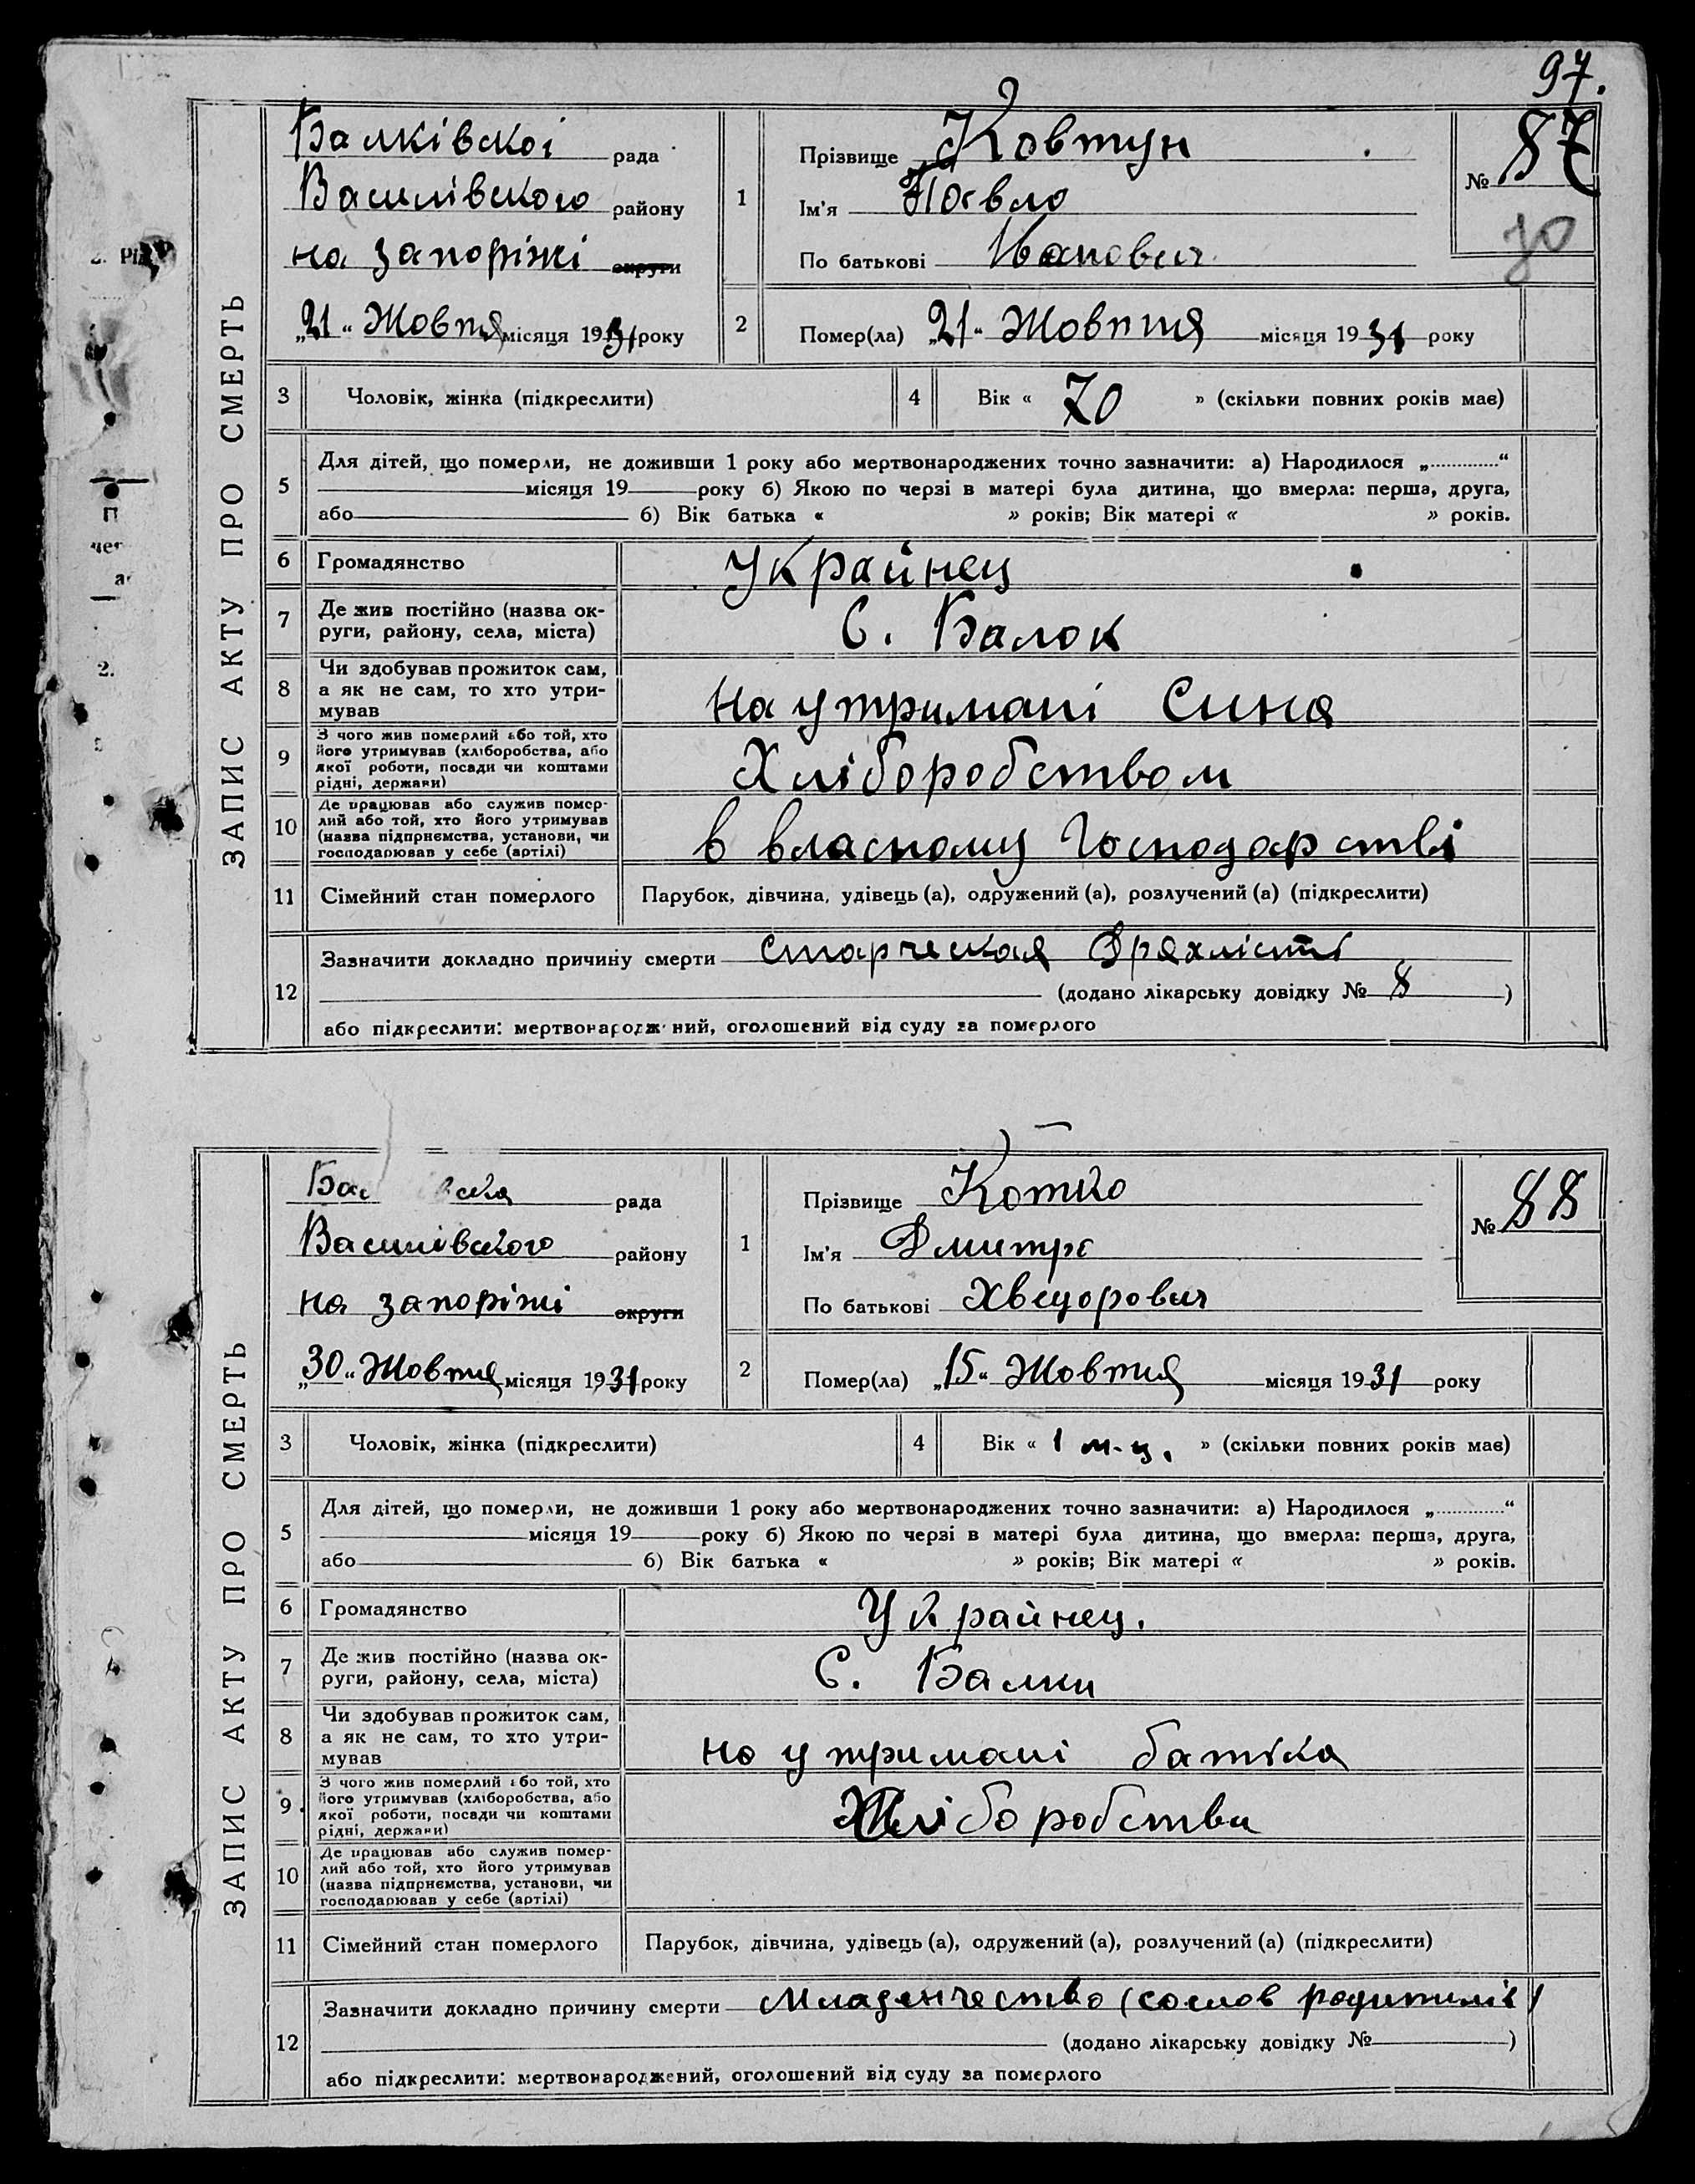 97.
ЗАПИС АКТУ ПРО СМЕРТЬ
Балківскоі рада
Василівского району
на Запоріжі округи
„21“ Жовтня місяця 1931 року
1
Прізвище Ковтун
Ім'я Павло
По батькові Иванович
№ 87
70
2
Помер(ла) „21“ Жовтня місяця 1931 року
3 Чоловік, жінка (підкреслити)
4 Вік « 70 » (скільки повних років має)
5 Для дітей, що померли, не доживши 1 року або мертвонароджених точно зазначити: а) Народилося „.............“
місяця 19 року б) Якою по черзі в матері була дитина, що вмерла: перша, друга,
або б) Вік батька « » років; Вік матері « » років.
6 Громадянство Украйнец
7 Де жив постійно (назва ок-
руги, району, села, міста) С. Балок
8 Чи здобував прожиток сам,
а як не сам, то хто утри-
мував на утримані Сина
9 З чого жив померлий або той, хто
його утримував (хліборобства, або
якої роботи, посади чи коштами
рідні, держави) Хліборобством
10 Де працював або служив помер-
лий або той, хто його утримував
(назва підприємства, установи, чи
господарював у себе (артілі) в власному Господарстві
11 Сімейний стан померлого Парубок, дівчина, удівець (а), одружений (а), розлучений (а) (підкреслити)
12 Зазначити докладно причину смерти старческая Дряхлість
(додано лікарську довідку № 8 )
або підкреслити: мертвонароджений, оголошений від суду за померлого
ЗАПИС АКТУ ПРО СМЕРТЬ
рада
Василівского району
на Запоріжі округи
„30“ Жовтня місяця 1931 року
1
Прізвище Котко
Ім'я Дмитро
По батькові Хведорович
№ 88
2
Помер(ла) „15“ Жовтня місяця 1931 року
3 Чоловік, жінка (підкреслити)
4 Вік « 1 м-ц. » (скільки повних років має)
5 Для дітей, що померли, не доживши 1 року або мертвонароджених точно зазначити: а) Народилося „.............“
місяця 19 року б) Якою по черзі в матері була дитина, що вмерла: перша, друга,
або б) Вік батька « » років; Вік матері « » років.
6 Громадянство Украйнец.
7 Де жив постійно (назва ок-
руги, району, села, міста) С. Балки
8 Чи здобував прожиток сам,
а як не сам, то хто утри-
мував на утримані батька
9 З чого жив померлий або той, хто
його утримував (хліборобства, або
якої роботи, посади чи коштами
рідні, держави) Хліборобства
10 Де працював або служив помер-
лий або той, хто його утримував
(назва підприємства, установи, чи
господарював у себе (артілі)
11 Сімейний стан померлого Парубок, дівчина, удівець (а), одружений (а), розлучений (а) (підкреслити)
12 Зазначити докладно причину смерти Младенчество (со слов родителів)
(додано лікарську довідку № )
або підкреслити: мертвонароджений, оголошений від суду за померлого